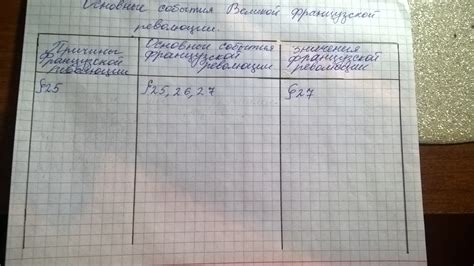 Основные события Великой французской
революции.
Причины
французской
революции
Основные события
французской
революции
значения
французской
революции
§25
§25, 26, 27
§27